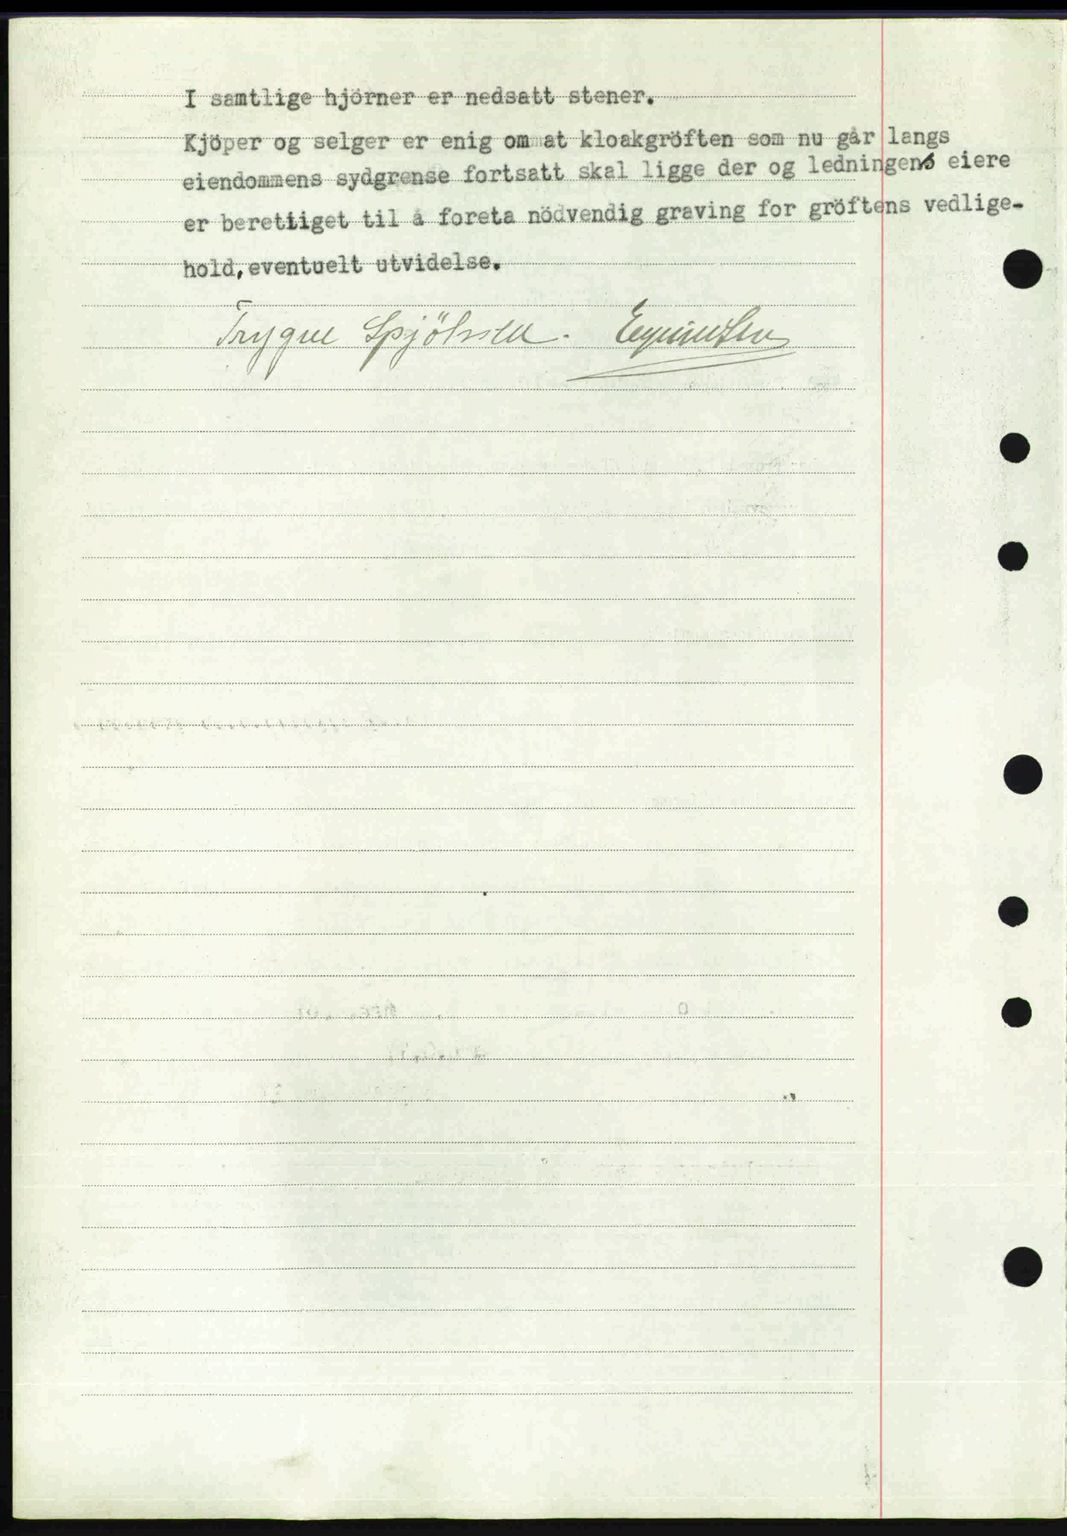 I samtlige hjörner er nedsatt stener.
Kjöper og selger er enig om at kloakgröften som nu går langs
eiendommens sydgrense fortsatt skal ligge der og ledningens eiere
er berettiget til å foreta nödvendig graving for gröftens vedlige-
hold, eventuelt utvidelse.
Trygve